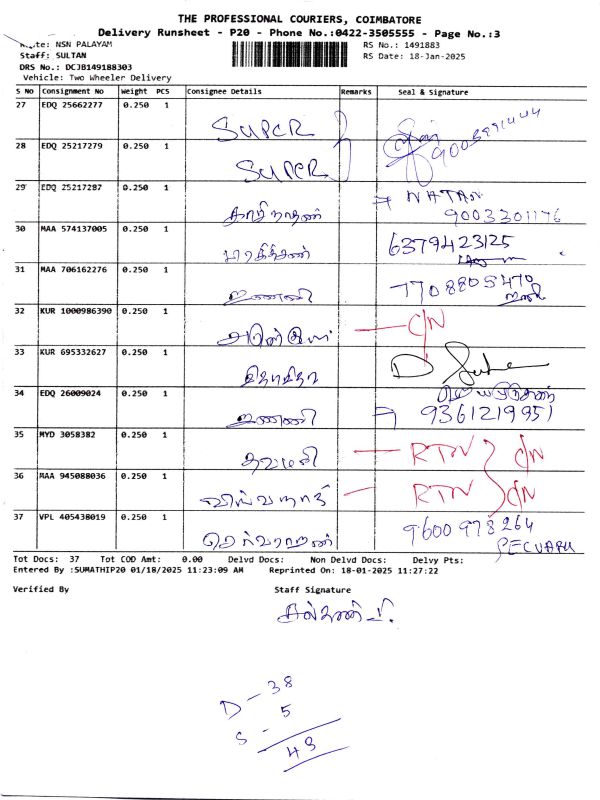 THE PROFESSIONAL COURIERS, COIMBATORE
Delivery Runsheet - P20 - Phone No.:0422-3505555 - Page No.:3
NSN PALAYAM
RS No.: 1491883
Staff: SULTAN
RS Date: 18-Jan-2025
DRS No.: DCJB149188303
Vehicle: Two Wheeler Delivery
S NO Consignment No Weight PCS Consignee Details Remarks Seal & Signature
27 EDQ 25662277 0.250 1 SUPER
28 EDQ 25217279 0.250 1 SUPER
29 EDQ 25217287 0.250 1 NATAN
9003301176
30 MAA 574137005 0.250 1 6379423125
31 MAA 706162276 0.250 1 7708805470
32 KUR 1000986390 0.250 1 C/N
33 KUR 695332627 0.250 1
34 EDQ 26009024 0.250 1 9361219951
35 MYD 3058382 0.250 1 RTN C/N
36 MAA 945088036 0.250 1 RTN C/N
37 VPL 405438019 0.250 1 9600978264
Tot Docs: 37 Tot COD Amt: 0.00 Delvd Docs: Non Delvd Docs: Delvy Pts:
Entered By :SUMATHIP20 01/18/2025 11:23:09 AM Reprinted On: 18-01-2025 11:27:22
Verified By Staff Signature
D - 38
S - 5
43